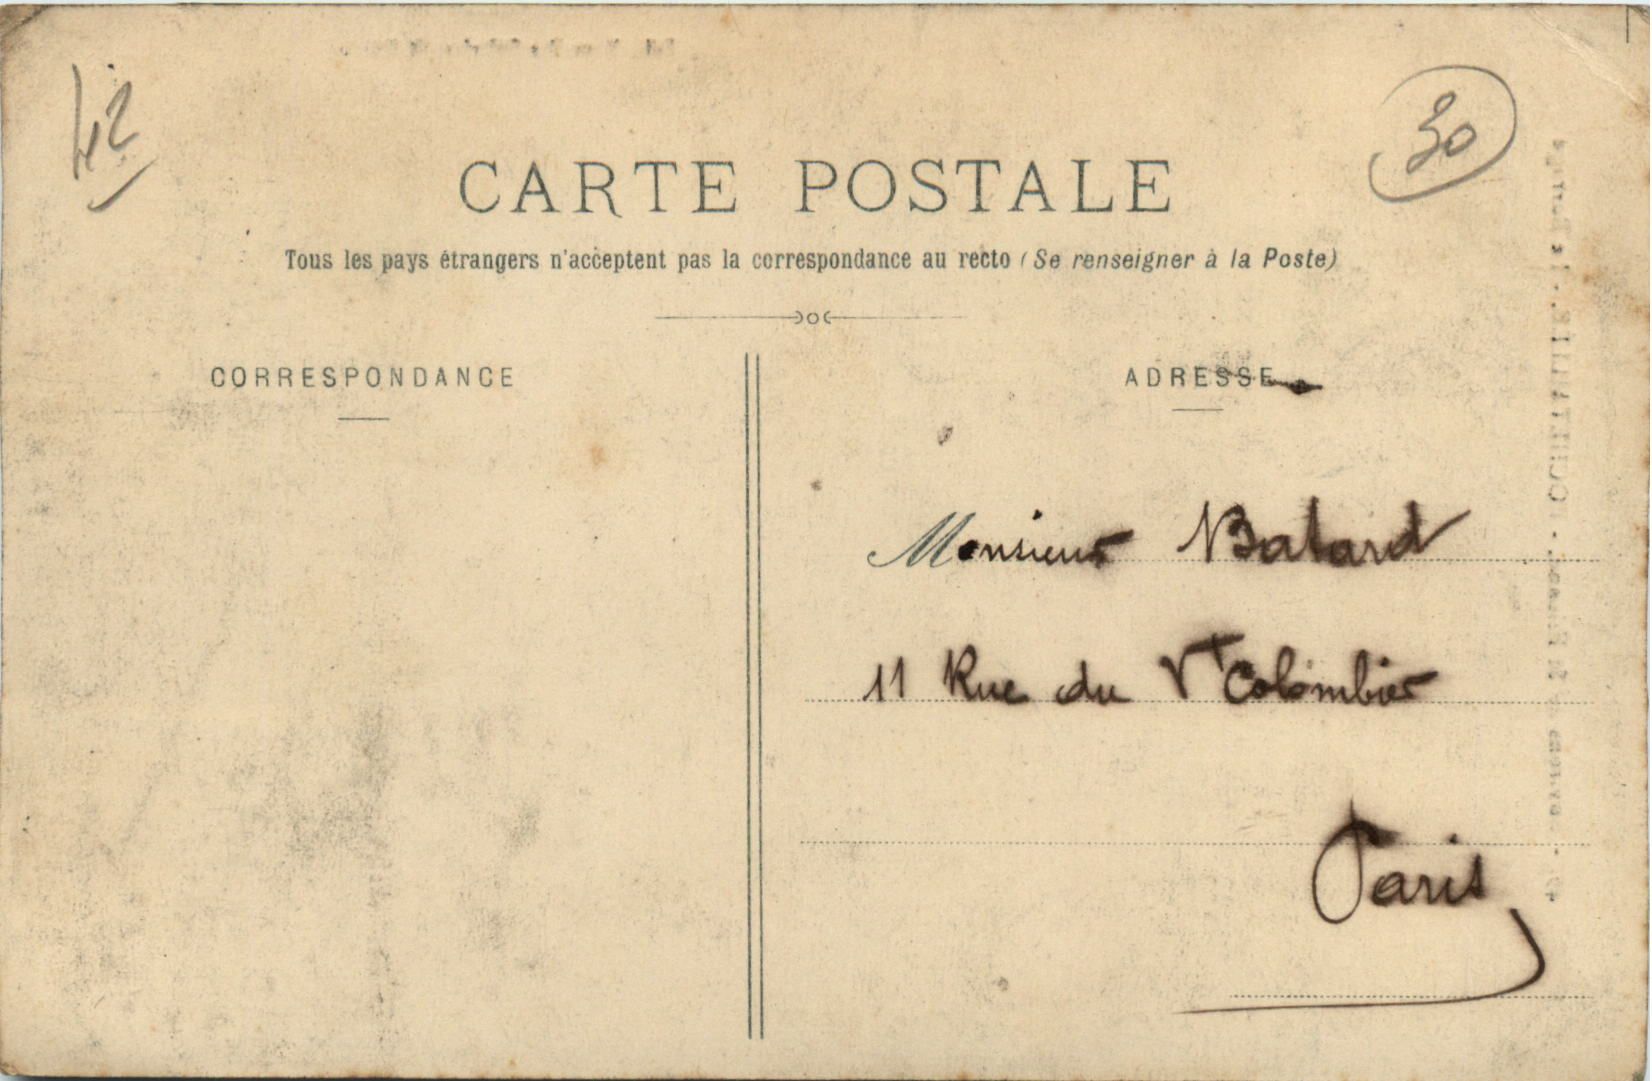 42
30
CARTE POSTALE
Tous les pays étrangers n'acceptent pas la correspondance au recto (Se renseigner à la Poste)
CORRESPONDANCE
ADRESSE
Monsieur Batard
11 Rue du Vx Colombier
Paris